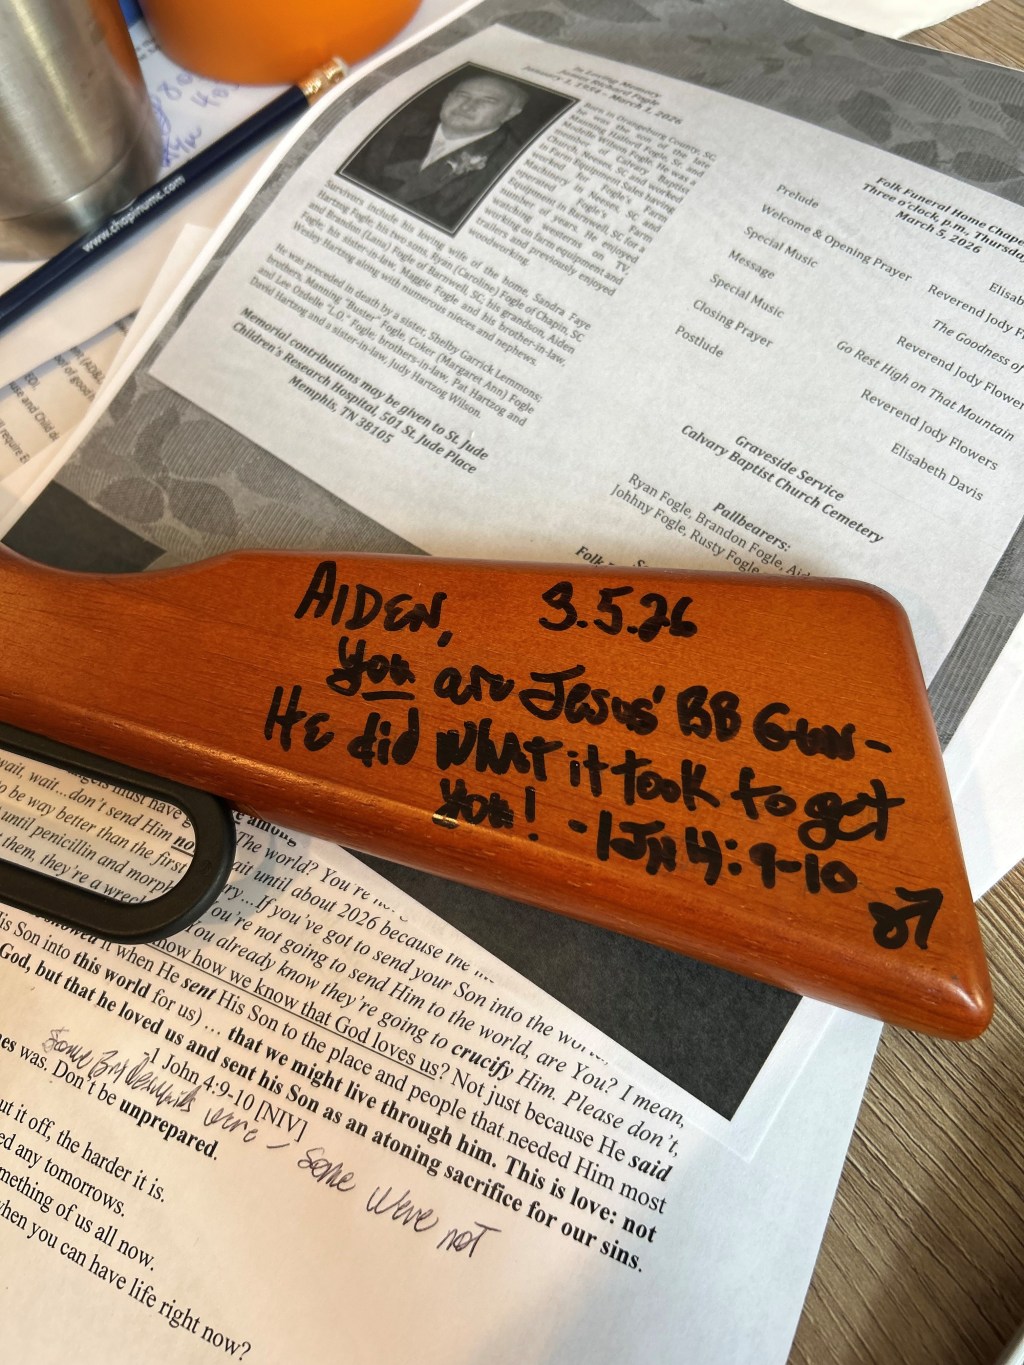 www.chapinumc.com
In Loving Memory
James Richard Fogle
January 1, 1934 - March 2, 2026
Born in Orangeburg County, SC,
he was the son of the late
Manning Halford Fogle and
Modelle Wilson Fogle. He was a
member of Calvary Baptist
Church, Neeses, SC, and having
worked for Fogle's Farm
Machinery in Neeses, SC and
operated Fogle's Farm
Equipment in Barnwell, SC for a
number of years. He enjoyed
watching westerns on TV,
working on farm equipment and
trailers and previously enjoyed
woodworking.
Survivors include his loving wife of the home, Sandra Faye
Hartzog Fogle; his two sons, Ryan (Caroline) Fogle of Chapin, SC
and Brandon (Lana) Fogle of Barnwell, SC; his grandson, Aiden
Fogle; his sister-in-law, Maggie Fogle and his brother-in-law,
Wesley Hartzog along with numerous nieces and nephews.
He was preceded in death by a sister, Shelby Garrick Lemmons;
brothers, Manning "Buster" Fogle, Coker (Margaret Ann) Fogle
and Lee Ordelle "L.O." Fogle; brothers-in-law, Pat Hartzog and
David Hartzog and a sister-in-law, Judy Hartzog Wilson.
Memorial contributions may be given to St. Jude
Children's Research Hospital, 501 St. Jude Place
Memphis, TN 38105
Folk Funeral Home Chapel
Three o'clock, p.m., Thursday
March 5, 2026
Prelude Elisab
Welcome & Opening Prayer Reverend Jody F
Special Music The Goodness of
Message Reverend Jody Flower
Special Music Go Rest High on That Mountain
Closing Prayer Reverend Jody Flowers
Postlude Elisabeth Davis
Graveside Service
Calvary Baptist Church Cemetery
Pallbearers:
Ryan Fogle, Brandon Fogle, Aid
Johhny Fogle, Rusty Fogle
Folk
AIDEN, 3.5.26
You are Jesus' BB Gun-
HE did what it took to get
you! -1JN 4:9-10
wait, wait...don't send Him no
o be way better than the first
until penicillin and morph
them, they're a wrec
among
The world? You're
ait until about 2026 because the
ry...If you've got to send your Son into the wor
You're not going to send Him to the world, are You? I mean,
You already know they're going to crucify Him. Please don't,
know how we know that God loves us? Not just because He said
showed it when He sent His Son to the place and people that needed Him most
is Son into this world for us) ... that we might live through him. This is love: not
God, but that he loved us and sent his Son as an atoning sacrifice for our sins.
1 John 4:9-10 [NIV]
nes was. Don't be unprepared.
were - some were not
ut it off, the harder it is.
ed any tomorrows.
mething of us all now.
when you can have life right now?